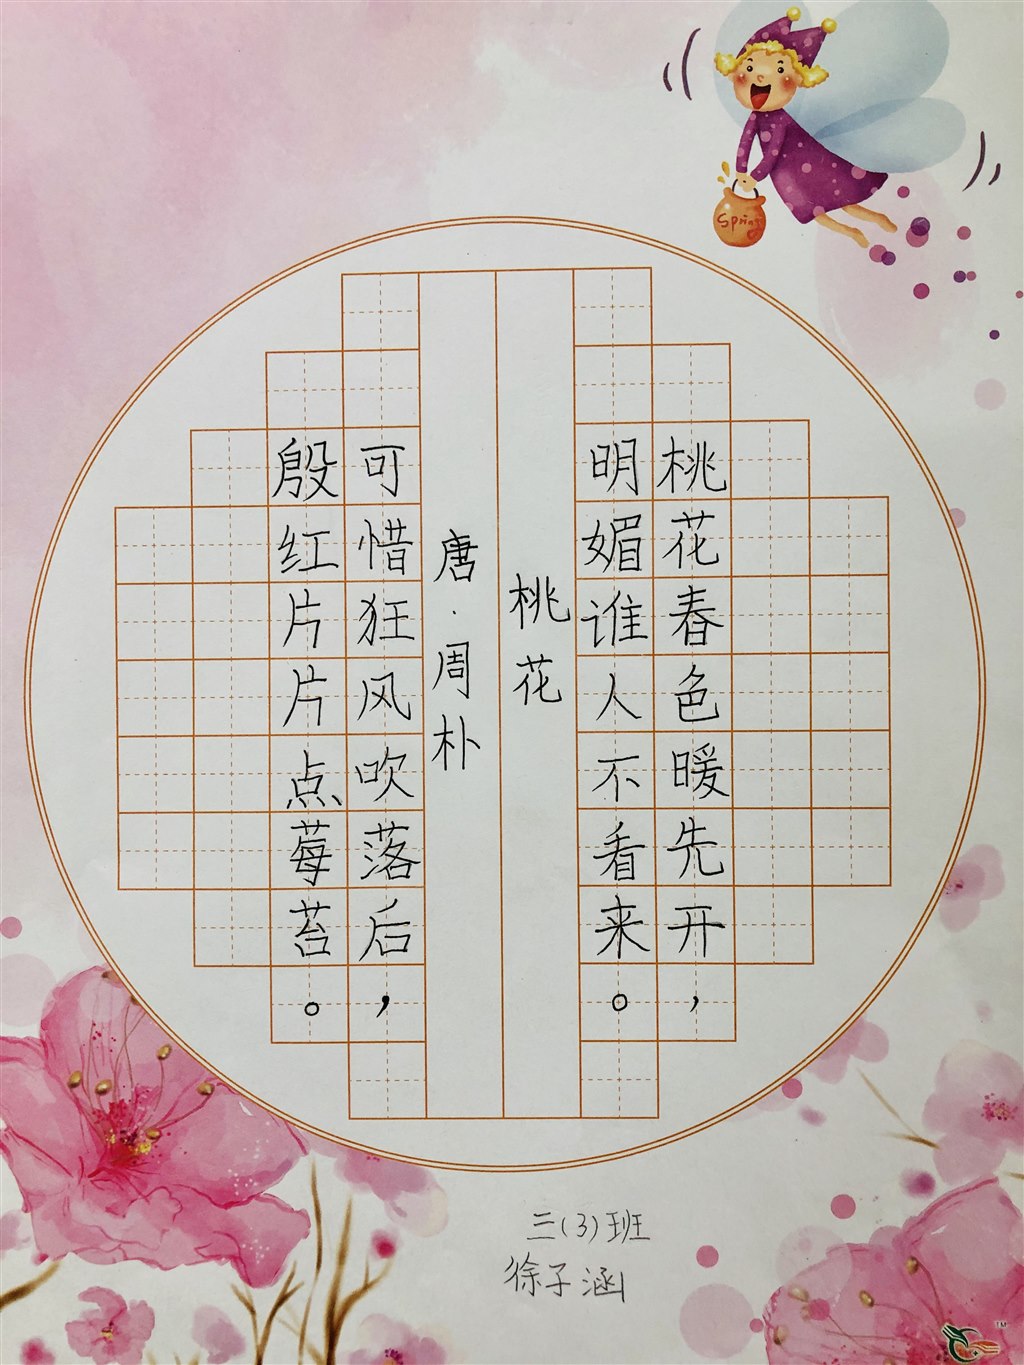 桃花春色暖先开，
明媚谁人不看来。
桃花
唐·周朴
可惜狂风吹落后，
殷红片片点莓苔。
三(3)班
徐子涵
Spring
TM